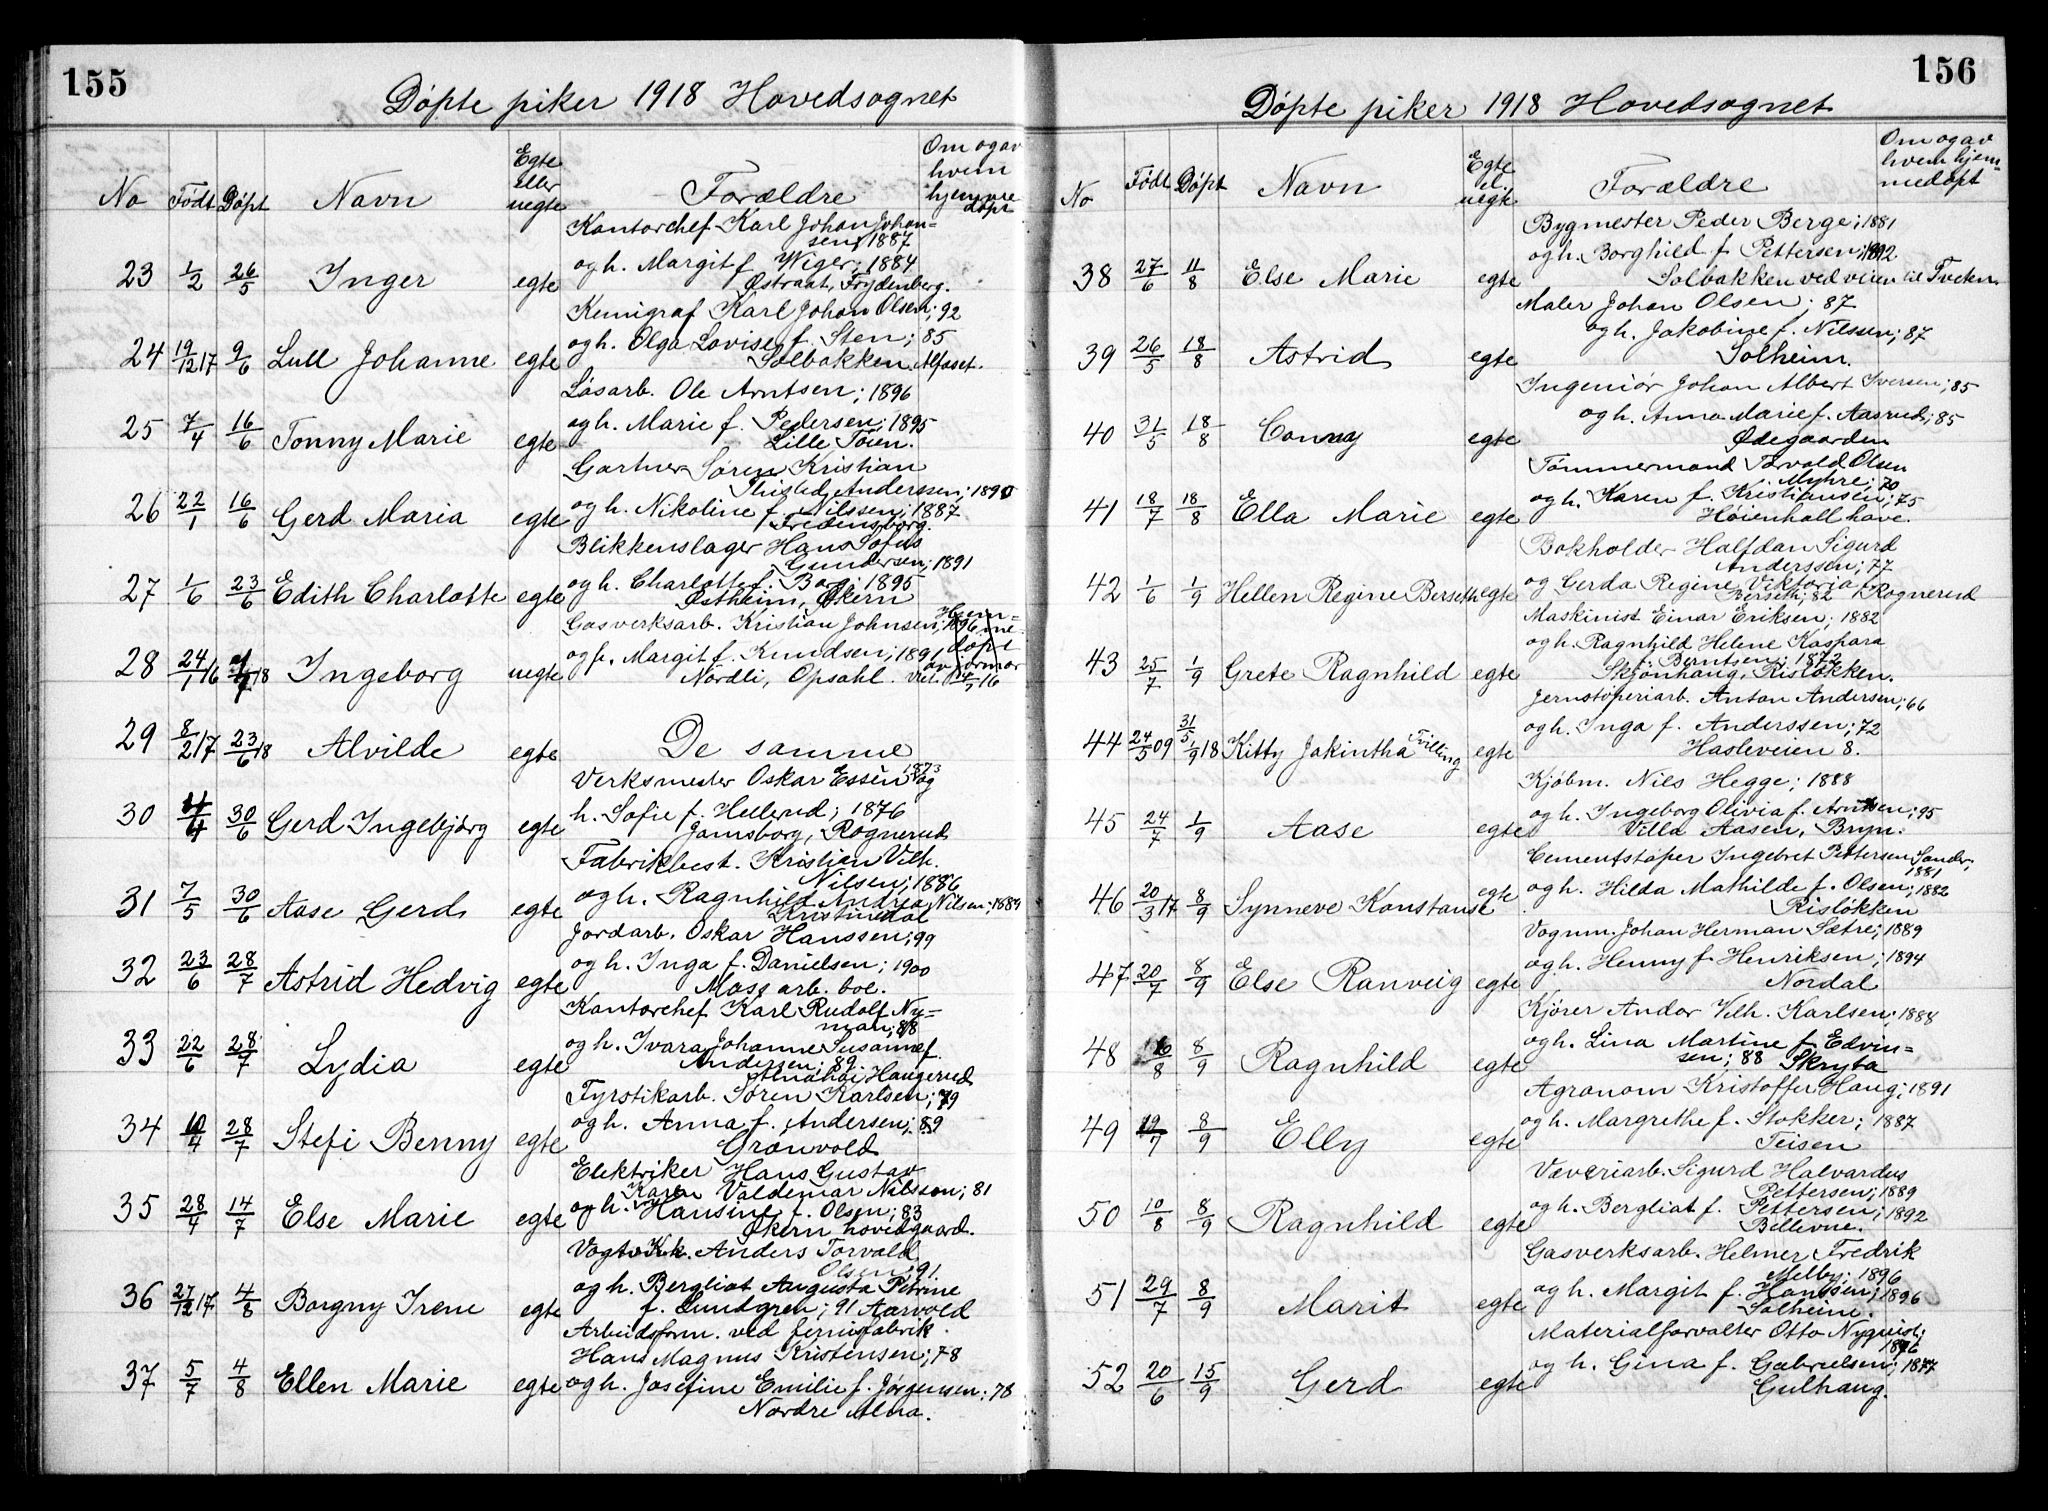 155
Døpte piker 1918 Hovedsognet
No Født Døpt Navn Egte eller uegte Forældre Om og av hvem hjemmedøpt
Kontorchef Karl Johan Johan-
sen; 1887
23 1/2 26/5 Inger egte og h. Margit f. Wiger; 1884
Østraat, Frydenberg.
Kemigraf Karl Johan Olsen; 92
og h. Olga Lovise f. Sten; 85
24 19/12 17 9/6 Lull Johanne egte Solbakken, Alfaset.
Løsarb. Ole Arntsen; 1896
25 7/4 16/6 Tonny Marie egte og h. Marie f. Pedersen; 1895
Lille Tøien.
Gartner Søren Kristian
Thisted Anderssen; 1890
26 22/1 16/6 Gerd Maria egte og h. Nikoline f. Nilssen; 1887
Fredensborg.
Blikkenslager Hans Sofus
Gundersen; 1891
27 1/6 23/6 Edith Charlotte egte og h. Charlotte f. Bo; 1895
Østheim, Økern
Gasverksarb. Kristian Johnsen; 1896 Hjem-
28 24/1 16 18 Ingeborg uegte og h. Margit f. Knudsen; 1891 medøpt
Nordli, Opsahl. av jormor
16
29 8/2 17 23/6 18 Alvilde egte De samme
Verksmester Oskar Essén 1873 og
30 30/6 Gerd Ingebjørg egte h. Sofie f. Hellerud; 1876
Jamsborg, Rognerud
Fabrikbest. Kristian Vilh.
Nilsen; 1886
31 7/5 30/6 Aase Gerd egte og h. Ragnhild Andrea Nilsen; 1889
Kristinedal
Jordarb. Oskar Hanssen; 99
32 23/6 28/7 Astrid Hedvig egte og h. Inga f. Danielsen; 1900
Mose arb. bol.
Kontorchef Karl Rudolf Ny-
man; 88
33 22/6 28/7 Lydia egte og h. Ivara Johanne Susanne f.
Anderssen; 89.
Alnahøi, Haugerud
Fyrstikarb. Søren Karlsen; 79
34 10/4 28/7 Stefi Benny egte og h. Anna f. Andersen; 89
Grønvold
Elektriker Hans Gustav
Karen Valdemar Nilsson; 81
35 28/4 14/7 Else Marie egte og h. Hansine f. Olsen; 83
Økern hovedgaard.
Vogtv. Kr. Anders Torvald
Olsen; 91
36 27/12 17 4/8 Borgny Irene egte og h. Bergliot Augusta Petrine
f. Lundgren; 91 Aarvold
Arbeidsform. ved fernisfabrik
Hans Magnus Kristensen; 78
37 5/7 4/8 Ellen Marie egte og h. Josefine Emilie f. Jørgensen; 78
Nordre Alna.
156
Døpte piker 1918 Hovedsognet
No Født Døpt Navn Egte el. uegte Forældre Om og av hvem hjem-medøpt
Bygmester Peder Berge; 1881
og h. Borghild f. Pettersen; 1892
38 27/6 11/8 Else Marie egte Solbakken ved veien til Tveten
Maler Johan Olsen; 87
og h. Jakobine f. Nilssen; 87
39 26/5 18/8 Astrid egte Solheim.
Ingeniør Johan Albert Iversen; 85
og h. Anna Marie f. Aasrud; 85
40 31/5 18/8 Conny egte Ødegaarden
Tømmermand Torvald Olsen
Myhre; 70
41 18/7 18/8 Ella Marie egte og h. Karen f. Kristiansen; 75
Høienhall have.
Bokholder Halfdan Sigurd
Anderssen; 77
42 1/6 1/9 Hellen Regine Berseth egte og Gerda Regine Viktoria f.
Berseth; 82 Rognerud
Maskinist Einar Eriksen; 1882
og h. Ragnhild Helene Kaspara
f. Berntsen; 1872
43 25/7 1/9 Grete Ragnhild egte Skjønhaug, Risløkken.
Jernstøperiarb. Anton Andersen; 66
og h. Inga f. Anderssen; 72
44 24/5 09 31/5 1/9 18 Kitty Jakintha Tvilling egte Hasleveien 8.
Kjøbm. Nils Hegge; 1888
og h. Ingeborg Olivia f. Arntsen; 95
45 24/7 1/9 Aase egte Villa Aasen, Bryn.
Cementstøper Ingebret Pettersen Sander,
1881
46 20/3 17 8/9 Synneve Konstanse egte og h. Hilda Mathilde f. Olsen; 1882
Risløkken
Vognm. Johan Herman Sætre; 1889
og h. Henny f. Henriksen; 1894
47 20/7 8/9 Else Ranveig egte Nordal
Kjører Andor Vilh. Karlsen; 1888
og h. Lina Martine f. Edvin-
48 16/8 8/9 Ragnhild egte sen; 88 Skryta
Agronom Kristoffer Haug; 1891
og h. Margrethe f. Stokker; 1887
49 19/7 8/9 Elly egte Teisen
Væveriarb. Sigurd Halvardus
Pettersen; 1889
50 10/8 8/9 Ragnhild egte og h. Bergliot f. Pettersen; 1892
Bellevue.
Gasverksarb. Helmer Fredrik
Melby; 1896
51 29/7 8/9 Marit egte og h. Margit f. Hanssen; 1896
Solheim.
Materialforvalter Otto Nyquist;
1876
52 20/6 15/9 Gerd egte og h. Gina f. Gabrielsen; 1877
Gulhaug.